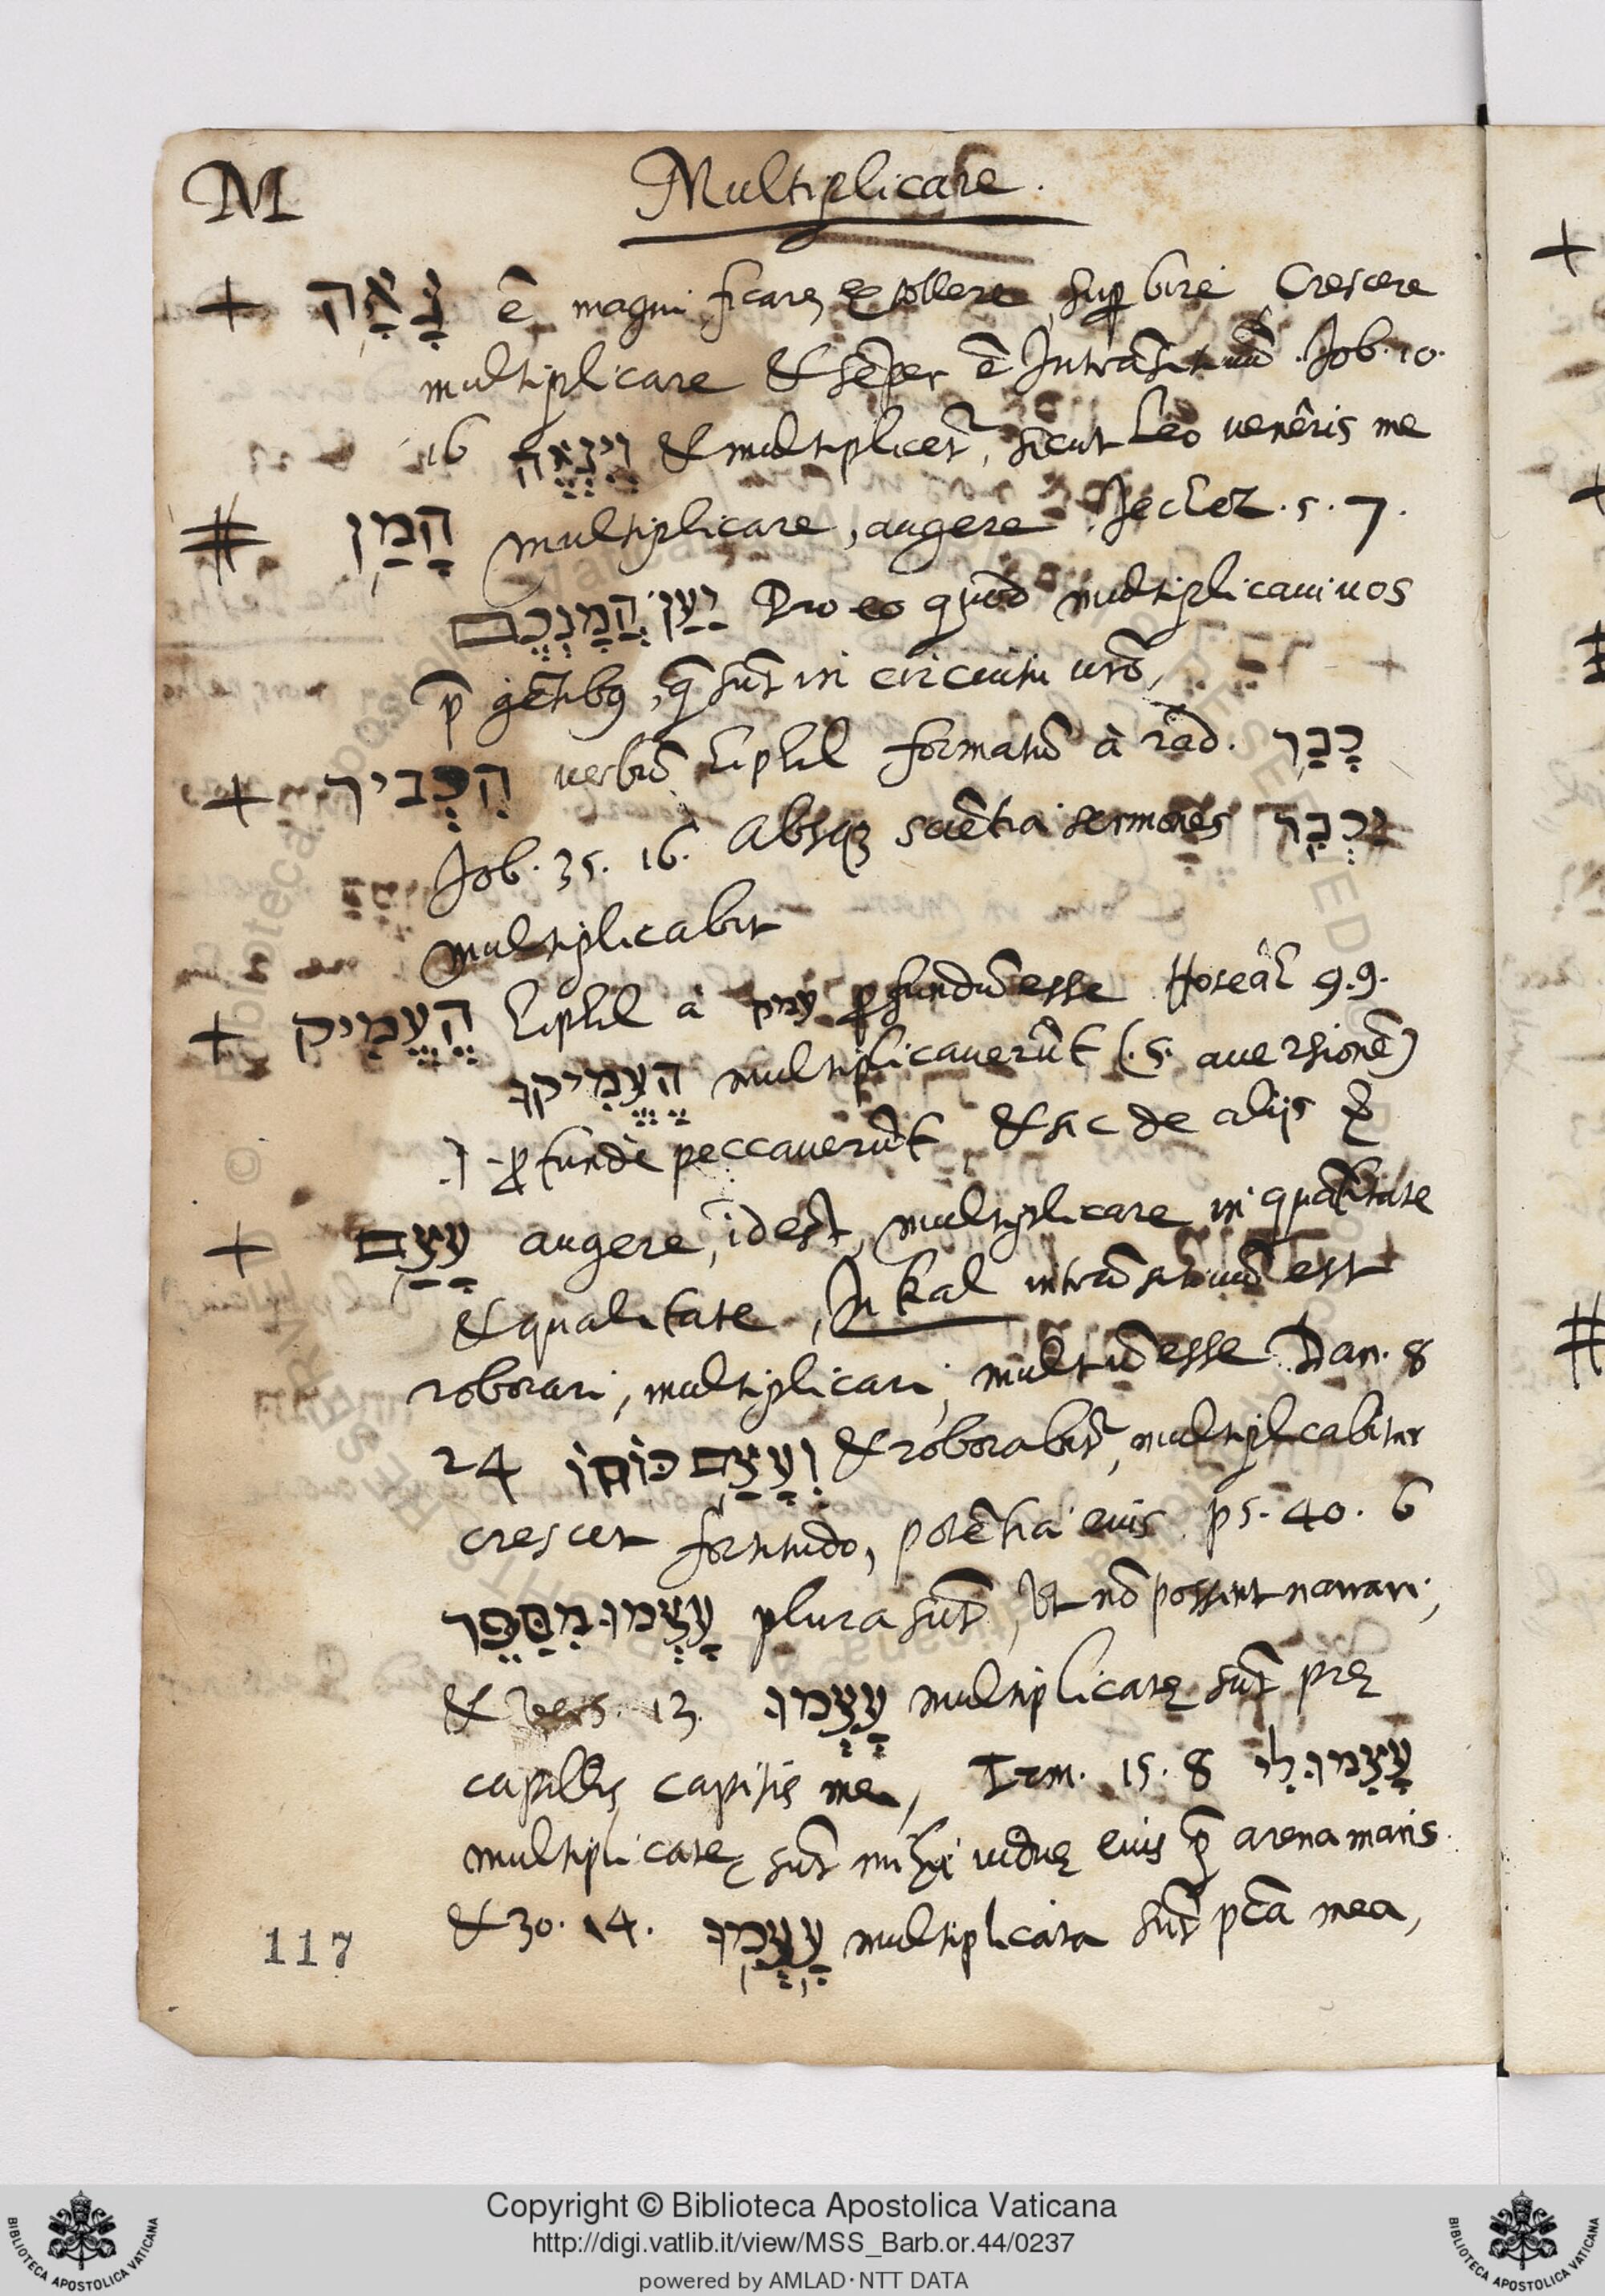 M Multiplicare.
+ גָּאָה ē magnificare, extollere, supbire, Crescere
multiplicare & sēper ē Intrāsitiuū. Job. 10.
16 וְיִגְאֶה & multiplicet, sicut Leo venêris me
# הָמַן multiplicare, augere. Jechez. 5. 7.
יַעַן הֲמָנְכֶם Pro eo quod multiplicaui uos
p̄ gētibꝰ, q̄ sūt in circuitu urō,
+ הִכְבִּיר verbū hiphil formatū à rad. כָּבַר
Job. 35. 16. Absqꝫ sciētia sermones יַכְבִּר
multiplicabit
+ הֶעֱמִיק hiphil à עמק ꝓfundū esse Hoseah 9. 9.
הֶעֱמִיקוּ multiplicauerūt (.s. auersionē)
.i. ꝓfundè peccauerūt, & sic de alijs
+ עָצַם augere, idest, multiplicare in quātitate
& qualitate, In kal intrāsitiuū est
roborari, multiplicari, multū esse Dan. 8
24 וְעָצַם כּוֹחוֹ & roborabit, multiplicabitur
crescet fortitudo, potētia eius. ps. 40. 6
עָצְמוּ מִסַּפֵּר plura sūt, Vt nō possint narrari;
& vers. 13. עָצְמוּ multiplicatę sūt prę
capillis capitis mei, Irm. 15. 8 עָצְמוּ לִי
multiplicatę sūt mihi viduę eius p̄ arena maris.
& 30. 14. עָצְמוּ multiplicata sūt pcā mea,
117
Copyright © Biblioteca Apostolica Vaticana
http://digi.vatlib.it/view/MSS_Barb.or.44/0237
powered by AMLAD·NTT DATA
BIBLIOTECA APOSTOLICA VATICANA
BIBLIOTECA APOSTOLICA VATICANA